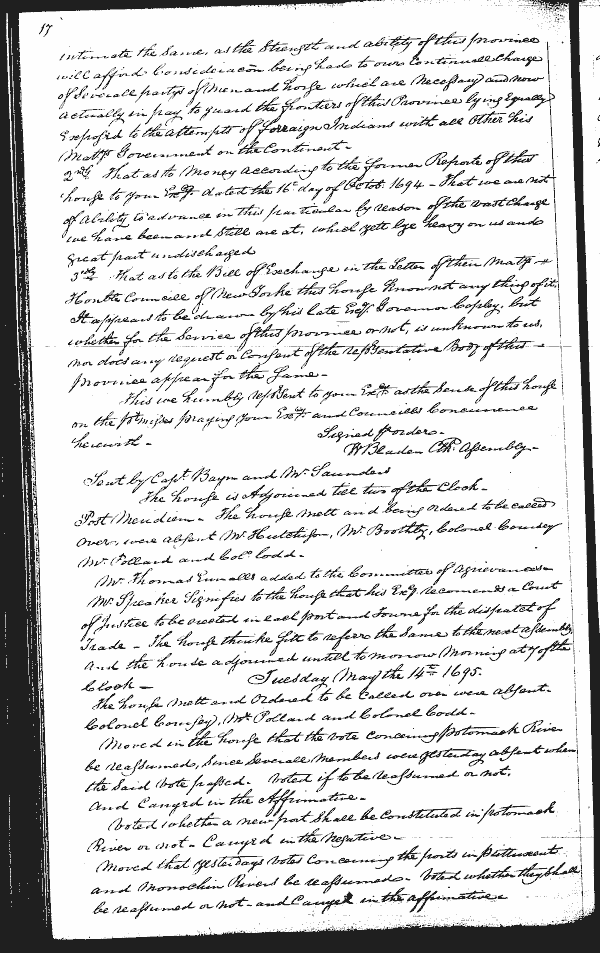 17
intimate the Same, as the Strength and ability of this province
will afford Consideracon being had to our Continuall Charge
of Severall partys of Men and horse which are Necessary and now
actually in pay to guard the frontiers of this Province lying Equally
Exposed to the Attempts of forreign Indians with all other his
Matys Government on the Continent -
2ndly That as to Money according to the former Reporte of this
house to your Exy dated the 16th day of Octob. 1694 - That we are not
of Ability to advance in this particular by reason of the vast Charge
we have been and Still are at, which yett lye heavy on us and
great part undischarged
3rdly That as to the Bill of Exchange in the Letter of their Matys
Honble Councill of New Yorke this house know not any thing of it.
It appears to be drawn by his late Exy Governor Copley, but
whether for the Service of this province or not, is unknown to us,
nor does any request or Consent of the repsentative Body of this -
Province appear for the Same -
This we humbly repsent to your Exy as the Sense of this house
on the pmises praying your Exy and Councills Concurrence
herewith -
Signed p order -
W Bladen Clk Assembly -
Sent by Capt. Baym and Mr Saunders
The house is Adjourned till two of the Clock -
Post Meridiem - The house mett and being ordered to be called
over, were absent Mr Hutchison, Mr Boothby, Colonel Coursey
Mr Pollard and Colo Codd -
Mr Thomas Ennalls added to the Committee of Agrievances -
Mr Speaker Signifies to the house that his Exy recomends a Court
of Justice to be erected in each port and Towne for the dispatch of
Trade - The house thinke fitt to referre the Same to the next assembly
And the house adjourned untill to morrow Morning at 7 of the
Clock -
Tuesday May the 14th 1695.
The house mett and Ordered to be Called over were absent -
Colonel Coursey, Mr Pollard and Colonel Codd -
Moved in the house that the vote concerning Potomack River
be reassumed, Since Severall Members were yesterday absent when
the Said vote passed. Voted if to be reassumed or not,
And Carryed in the Affirmative -
Voted whether a new port Shall be Constituted in potomack
River or not - Carryed in the Negative -
Moved that yesterdays votes Concerning the ports in Puttuxent
and Monochin Rivers be reassumed - Voted whether they Shall
be reassumed or not - and Carryed in the affirmative -